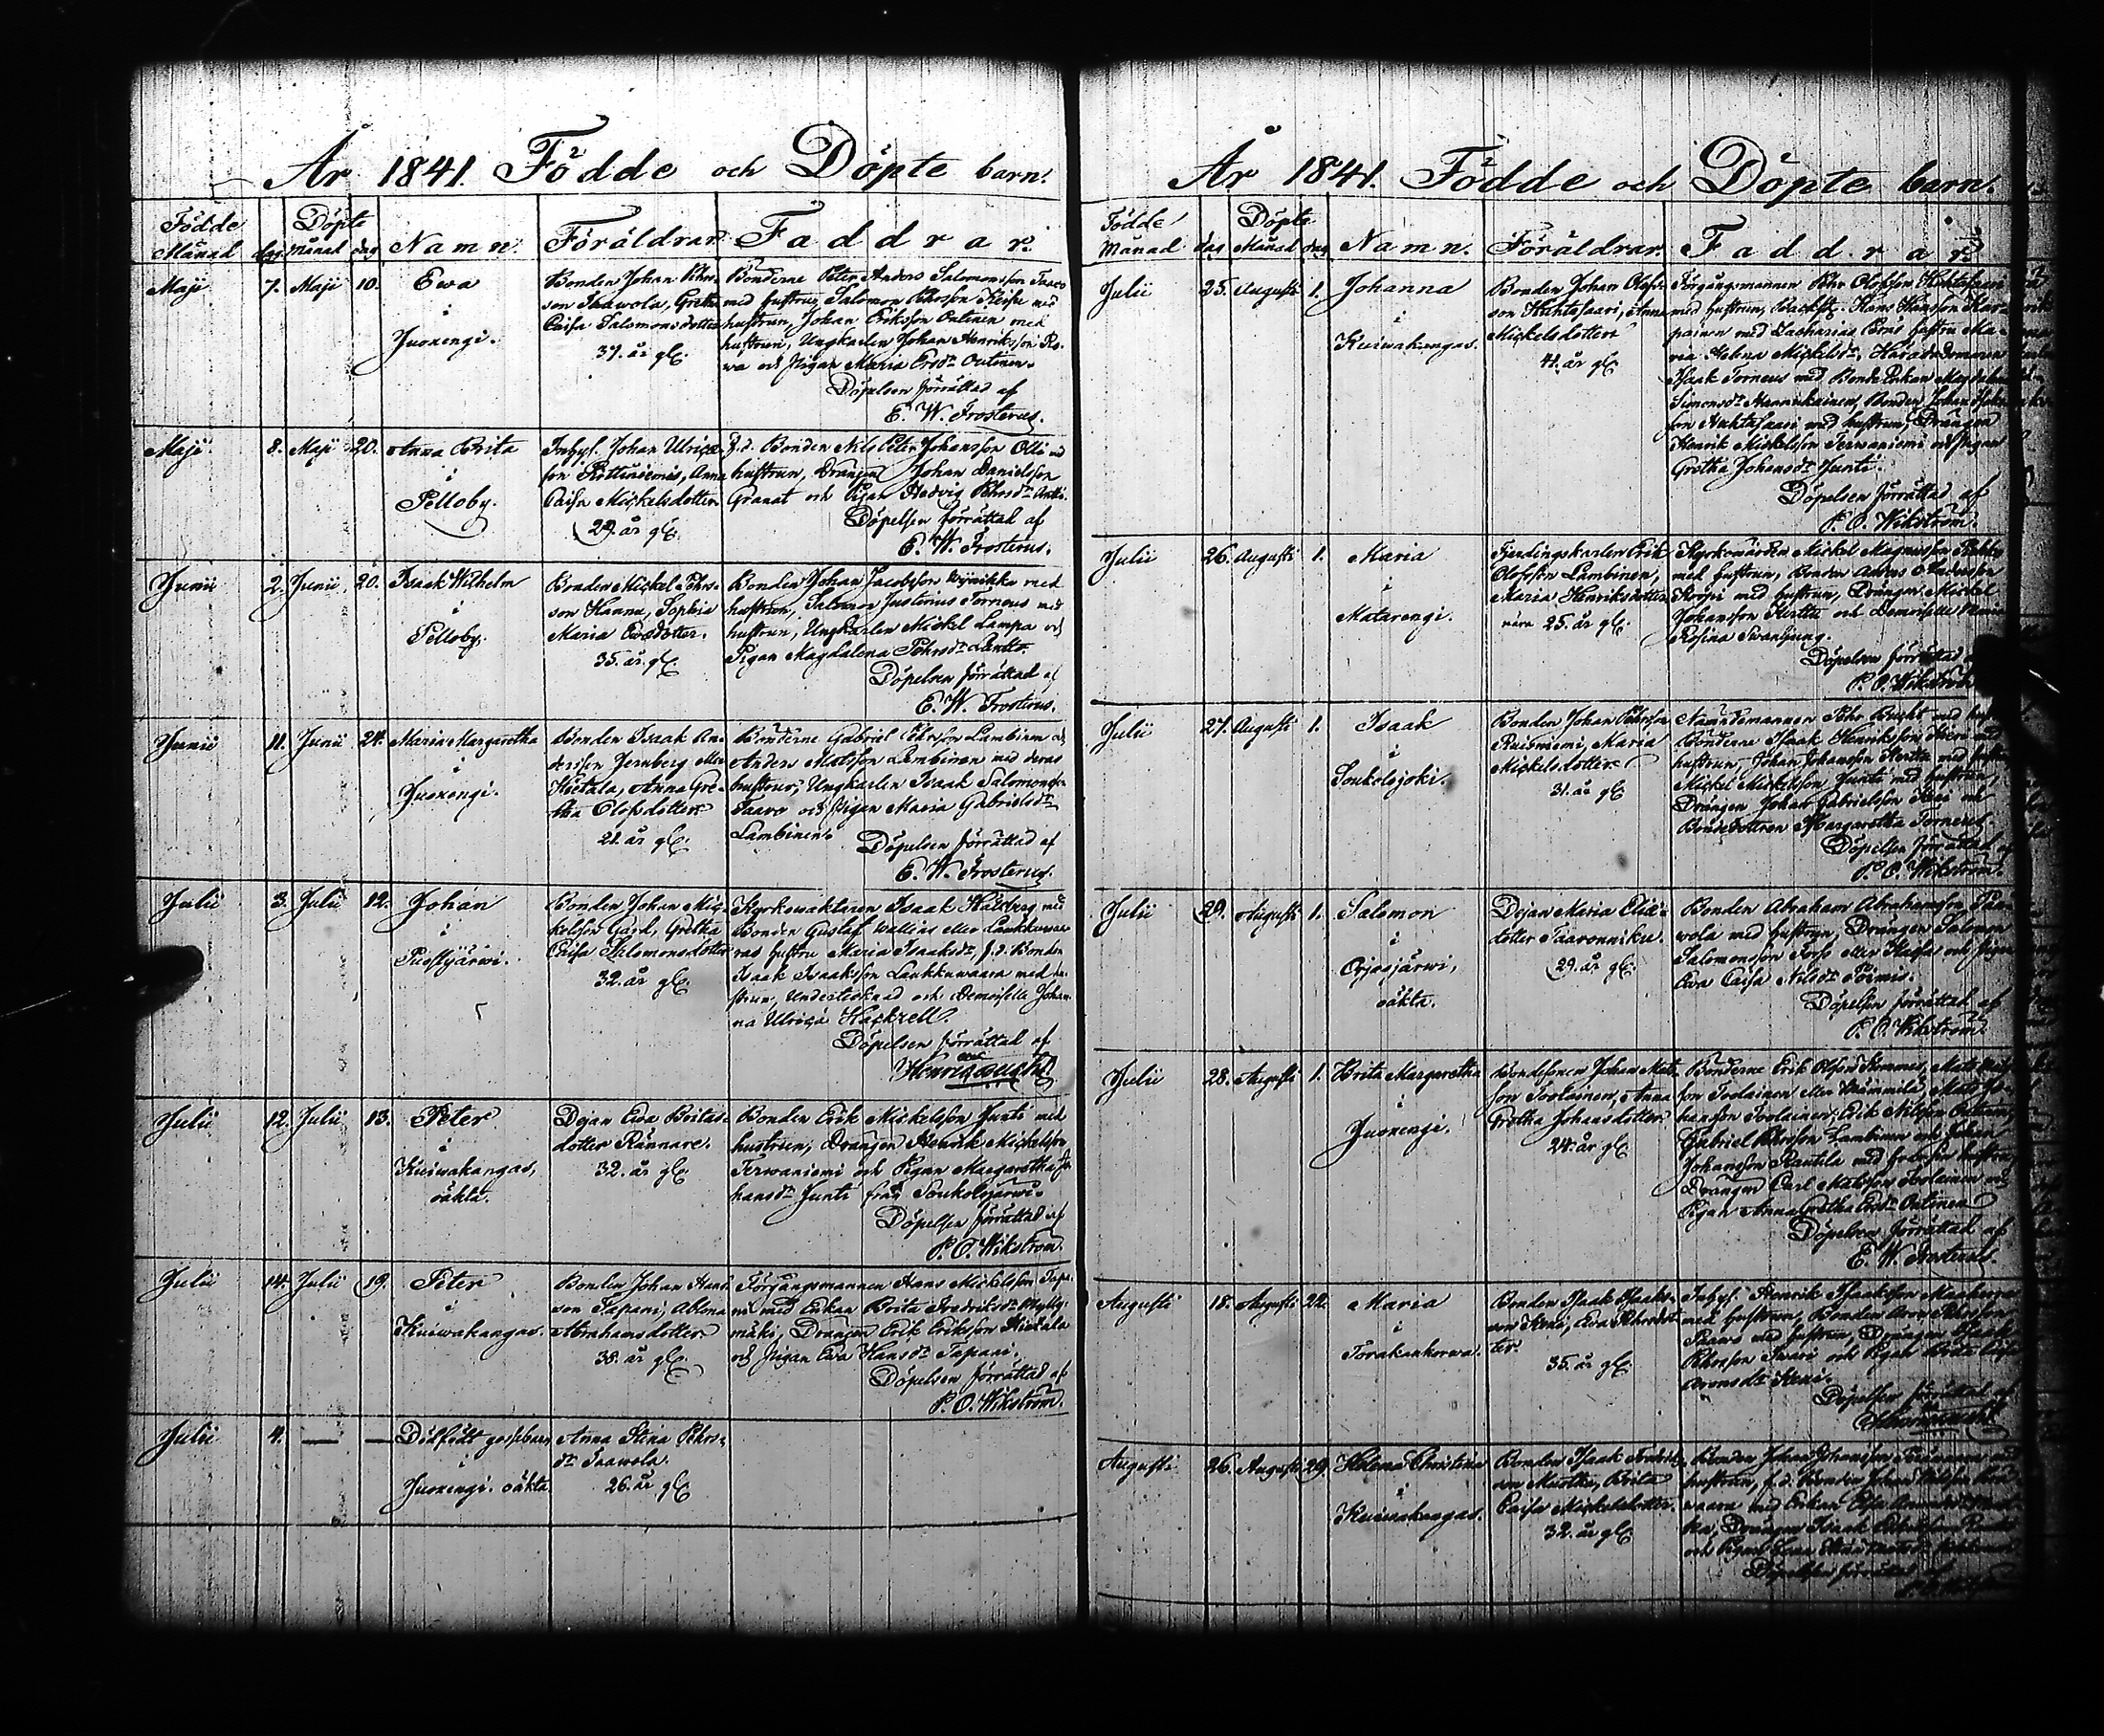 År 1841. Födde och Döpte barn.
Födde Döpte
Månad dag. Månad dag Namn. Föräldrar. Faddrar.
Maji 7. Maji 10. Ewa
i
Juoxengi.
Bonden Johan Pehrs-
son Grethe
Caisa Salomonsdotter
37. år gl.
Bönderne Peter Anders Salomonsson
med hustrur, Salomon Pehrsson med
hustrun, Johan Eriksson Outinen med
hustrun, Ungkarlen Johan Henriksson Ro-
wa och Pigan Maria Ersdr Outinen.
Döpelsen förrättad af
E. W. Frosterus.
Maji 8. Maji 20. Anna Brita
i
Pelloby.
Inhys. Johan Ulrics-
son Anna
Caisa Mickelsdotter
29. år gl.
f.d. Bonden Nils Peter Johansson Olli med
hustrun, Drängen Johan Danielsson
Granat och Pigan Hedvig Pehrsdr
Döpelsen förrättad af
E. W. Frosterus.
Junii 2. Junii 20. Isaak Wilhelm
i
Pelloby.
Bonden Mickel Pehrs-
son Hannu, Sophia
Maria Ersdotter.
35. år gl.
Bonden Johan Jacobsson med
hustrun, Salomon Justinius Torneus med
hustrun, Ungkarlen Mickel Lampa och
Pigan Magdalena Pehrsdr
Döpelsen förrättad af
E. W. Frosterus.
Junii 11. Junii 24. Maria Margaretha
i
Juoxengi.
Bonden Isaak An-
dersson Jernberg eller
Hietala, Anna Gre-
tha Olofsdotter.
21. år gl.
Bönderne Gabriel Pehrsson Lambinen och
Anders Matsson Lambinen med deras
hustrur, Ungkarlen Isaak Salomonss.
Taavo och Pigan Maria Gabrielsdr
Lambinen.
Döpelsen förrättad af
E. W. Frosterus.
Julii 3. Julii 12. Johan
i
Puostijärwi.
Bonden Johan Mic-
kelsson Gård, Gretha
Caisa Salomonsdotter
32. år gl.
Kyrkowaktaren Isaak Hallberg med
Bonden Gustaf Wallins eller Laukkuwaa-
ras hustru Maria Isaaksdr, f.d. Bonden
Isaak Isaaksson Laukkuwaara med hu-
strun, Undertecknad och Demoiselle Johan-
na Ulrica Hackzell.
Döpelsen förrättad af
Julii 12. Julii 13. Peter
i
Kuiwakangas,
oäkta.
Dejan Ewa Britas-
dotter Rännare.
32. år gl.
Bonden Erik Mickelsson Junti med
hustrun, Drängen Henrik Mickelsson
Terwaniemi och Pigan Margaretha Jo-
hansdr Junti från Soukolojärwi.
Döpelsen förrättad af
P. O. Wikström.
Julii 14. Julii 19. Peter
i
Kuiwakangas.
Bonden Johan Hans-
son Tapani, Ablona
Abrahamsdotter.
38. år gl.
Förgångsmannen Hans Mickelsson Tapa-
ni med Enkan Brita Fredriksdr Mylly-
mäki, Drängen Erik Eriksson Hietala
och Pigan Ewa Hansdr Tapani.
Döpelsen förrättad af
P. O. Wikström.
Julii 4. — — Dödfödt gossebarn
i
Juoxengi. oäkta.
Anna Stina Pehrs-
dr
26. år gl.
År 1841. Födde och Döpte barn.
Födde Döpte
Månad dag Månad dag Namn. Föräldrar. Faddrar.
Julii 25. Augusti 1. Johanna
i
Kuiwakangas.
Bonden Johan Olofs-
son Huhtasaari, Anna
Mickelsdotter
41. år gl.
Förgångsmannen Pehr Olofsson Huhtasaari
med hustrun, Hans Hansson Kar-
painen med Zacharias hustru Ma-
ria Helena Mickelsdr, Häradsdomaren
Isaak Torneus med Bonde Enkan
Simonsdr Bonden Johan
son Huhtasaari med hustrun, Drängen
Henrik Mickelsson Terwaniemi och Pigan
Gretha Johansdr Junti.
Döpelsen förrättad af
P. O. Wikström.
Julii 26. Augusti 1. Maria
i
Matarengi.
Fjerdingskarlen Erik
Olofsson Lambinen,
Maria Henriksdotter
nära 25. år gl.
Kyrkowärden Mickel Magnusson
med hustrun, Bonden Anders Andersson
med hustrun, Drängen Mickel
Johansson Hertta och Demoiselle Maria
Rosina Swanljung.
Döpelsen förrättad
P. O. Wikström
Julii 27. Augusti 1. Isaak
i
Soukolojoki.
Bonden Johan Pehrsson
Ruisniemi, Maria
Mickelsdotter
31. år gl.
Nämndemannen Pehr med
Bönderne Isaak Henriksson med
hustrun, Johan Johansson Hertta med
Mickel Mickelsson Junti med hustrun,
Drängen Johan Gabrielsson och
Bondedottren Margaretha Torneus.
Döpelsen förrättad af
P. O. Wikström.
Julii 29. Augusti 1. Salomon
i
Orjasjärwi,
oäkta.
Dejan Maria Eliæ-
dotter Taavonniku.
29. år gl.
Bonden Abraham Abrahamsson
med hustrun, Drängen Salomon
Salomonsson eller och Pigan
Ewa Caisa Nilsdr
Döpelsen förrättad af
P. O. Wikström
Julii 28. Augusti 1. Brita Margaretha
i
Juoxengi.
Bondesonen Johan Mats-
son Toolainen, Anna
Gretha Johansdotter.
24. år gl.
Bönderne Erik Olofsson Mats
son Toolainen eller Mats Jo-
hansson Toolainen, Erik Nilsson
Gabriel Pehrsson Lambinen och Johan
Johansson Rautila med hustrur
Drängen Carl Matsson Toolainen och
Pigan Anna Gretha Ersdr Outinen
Döpelsen förrättad af
E. W. Frosterus.
Augusti 18. Augusti 22. Maria
i
Torakankorwa.
Bonden Isaak Isaaks-
son Ewa Pehrsdot-
ter.
35. år gl.
Inhys. Henrik Isaaksson
med hustrun, Bonden Aron Pehrsson
med hustrun, Drängen Isaak
Pehrsson och Pigan Brita Caisa
Aronsdr
Döpelsen förrättad af
Augusti 26. Augusti 29. Helena Christina
i
Kuiwakangas.
Bonden Isaak Fredriks-
son Brita
Caisa Mickelsdotter.
32. år gl.
Bonden Johan Johansson
hustrun, f.d. Bonden Johan
waara med Enkan
Drängen Isaak
och Pigan
Döpelsen förrättad